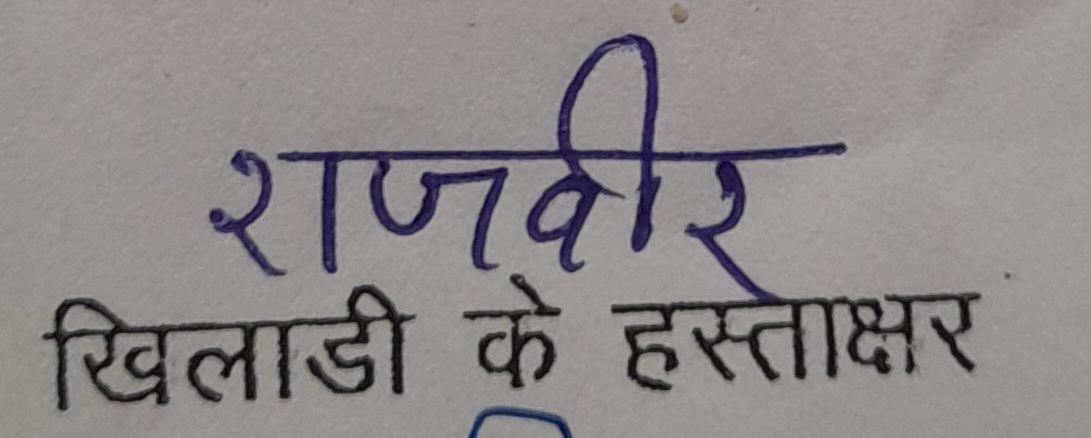 राजवीर
खिलाडी के हस्ताक्षर